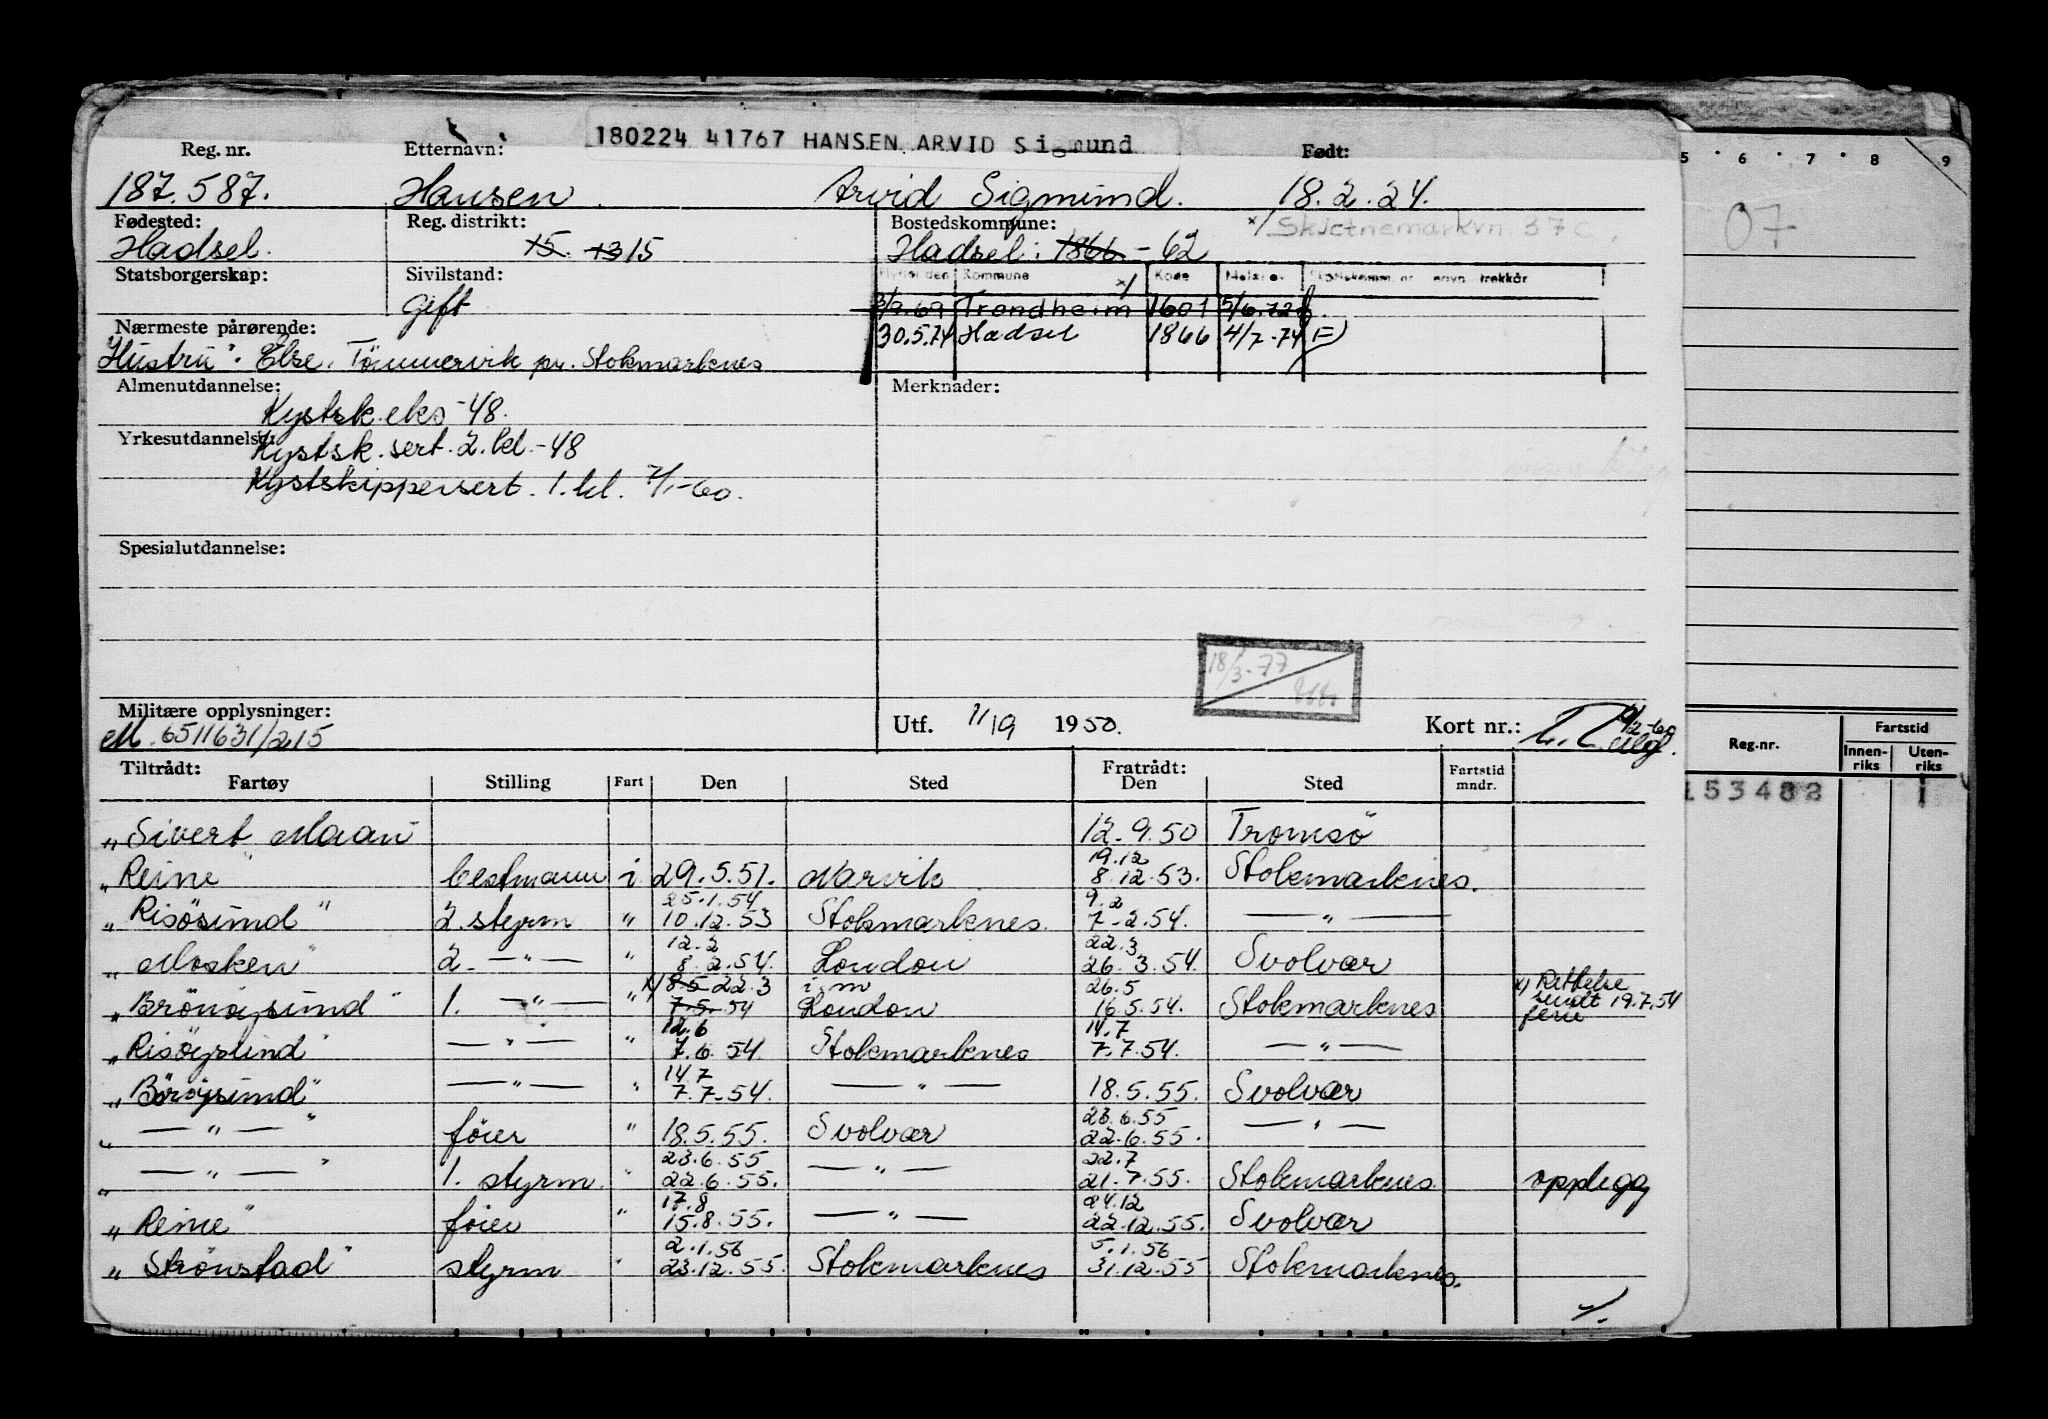 180224 41767 HANSEN ARVID Sigmund
Reg. nr. Etternavn: Født:
187.587. Hansen Arvid Sigmund. 18.2.24.
Fødested: Reg. distrikt: Bostedskommune: x/ Skjetnemarkvn. 37c.
Hadsel. 15. 13 15 Hadsel: 1866 - 62
Statsborgerskap: Sivilstand: Flyttet den Kommune x/ Kode
gift 3/9.69 Trondheim 1601 5/6.72
Nærmeste pårørende: 30.5.74 Hadsel 1866 4/7-74 F)
"Hustru": Else, Tömmervik pr. Stokmarknes
Almenutdannelse: Merknader:
Kystsk.eks -48.
Yrkesutdannelse:
Kystsk.sert.2.kl.-48
Kystskippersert. 1.kl. 7/1-60.
Spesialutdannelse:
18/3-77
Militære opplysninger: Utf. 1/19 1950. Kort nr.:
M. 6511631/215
Tiltrådt: Fratrådt:
Fartøy Stilling Fart Den Sted Den Sted Fartstid mndr.
"Sivert Maan 12.9.50 Tromsö
19.12
"Reine" bestmann i 29.5.51. Narvik 8.12.53. Stokmarknes.
25.1.54 9.2
"Risösund" 2. styrm " 10.12.53 Stokmarknes. 7.2.54. — " —
12.2 22.3
"Mosken" 2. — " — " 8.2.54. London 26.3.54. Svolvær
x) 8.5 22.3 i.m 26.5 x) Rettelse
"Brönöysund" 1. — " — " 7.5.54 London 16.5.54. Stokmarknes sendt 19.7.54
ferie
12.6 14.7
"Risöysund" — " — " 7.6.54. Stokmarknes 7.7.54. — " —
14.7
"Böröysund" — " — " 7.7.54. — " — 18.5.55. Svolvær
23.6.55
" — " — " förer " 18.5.55. Svolvær 22.6.55. — " —
23.6.55 22.7
" — " — " 1. styrm. " 22.6.55. — " — 21.7.55. Stokmarknes opplegg
17.8 24.12
"Reine" förer " 15.8.55. — " — 22.12.55. Svolvær
2.1.56 5.1.56
"Strönstad" styrm " 23.12.55. Stokmarknes 31.12.55 Stokmarknes.
5 6 7 8 9
07
Reg.nr. Fartstid
Innen-riks Uten-riks
153482 1